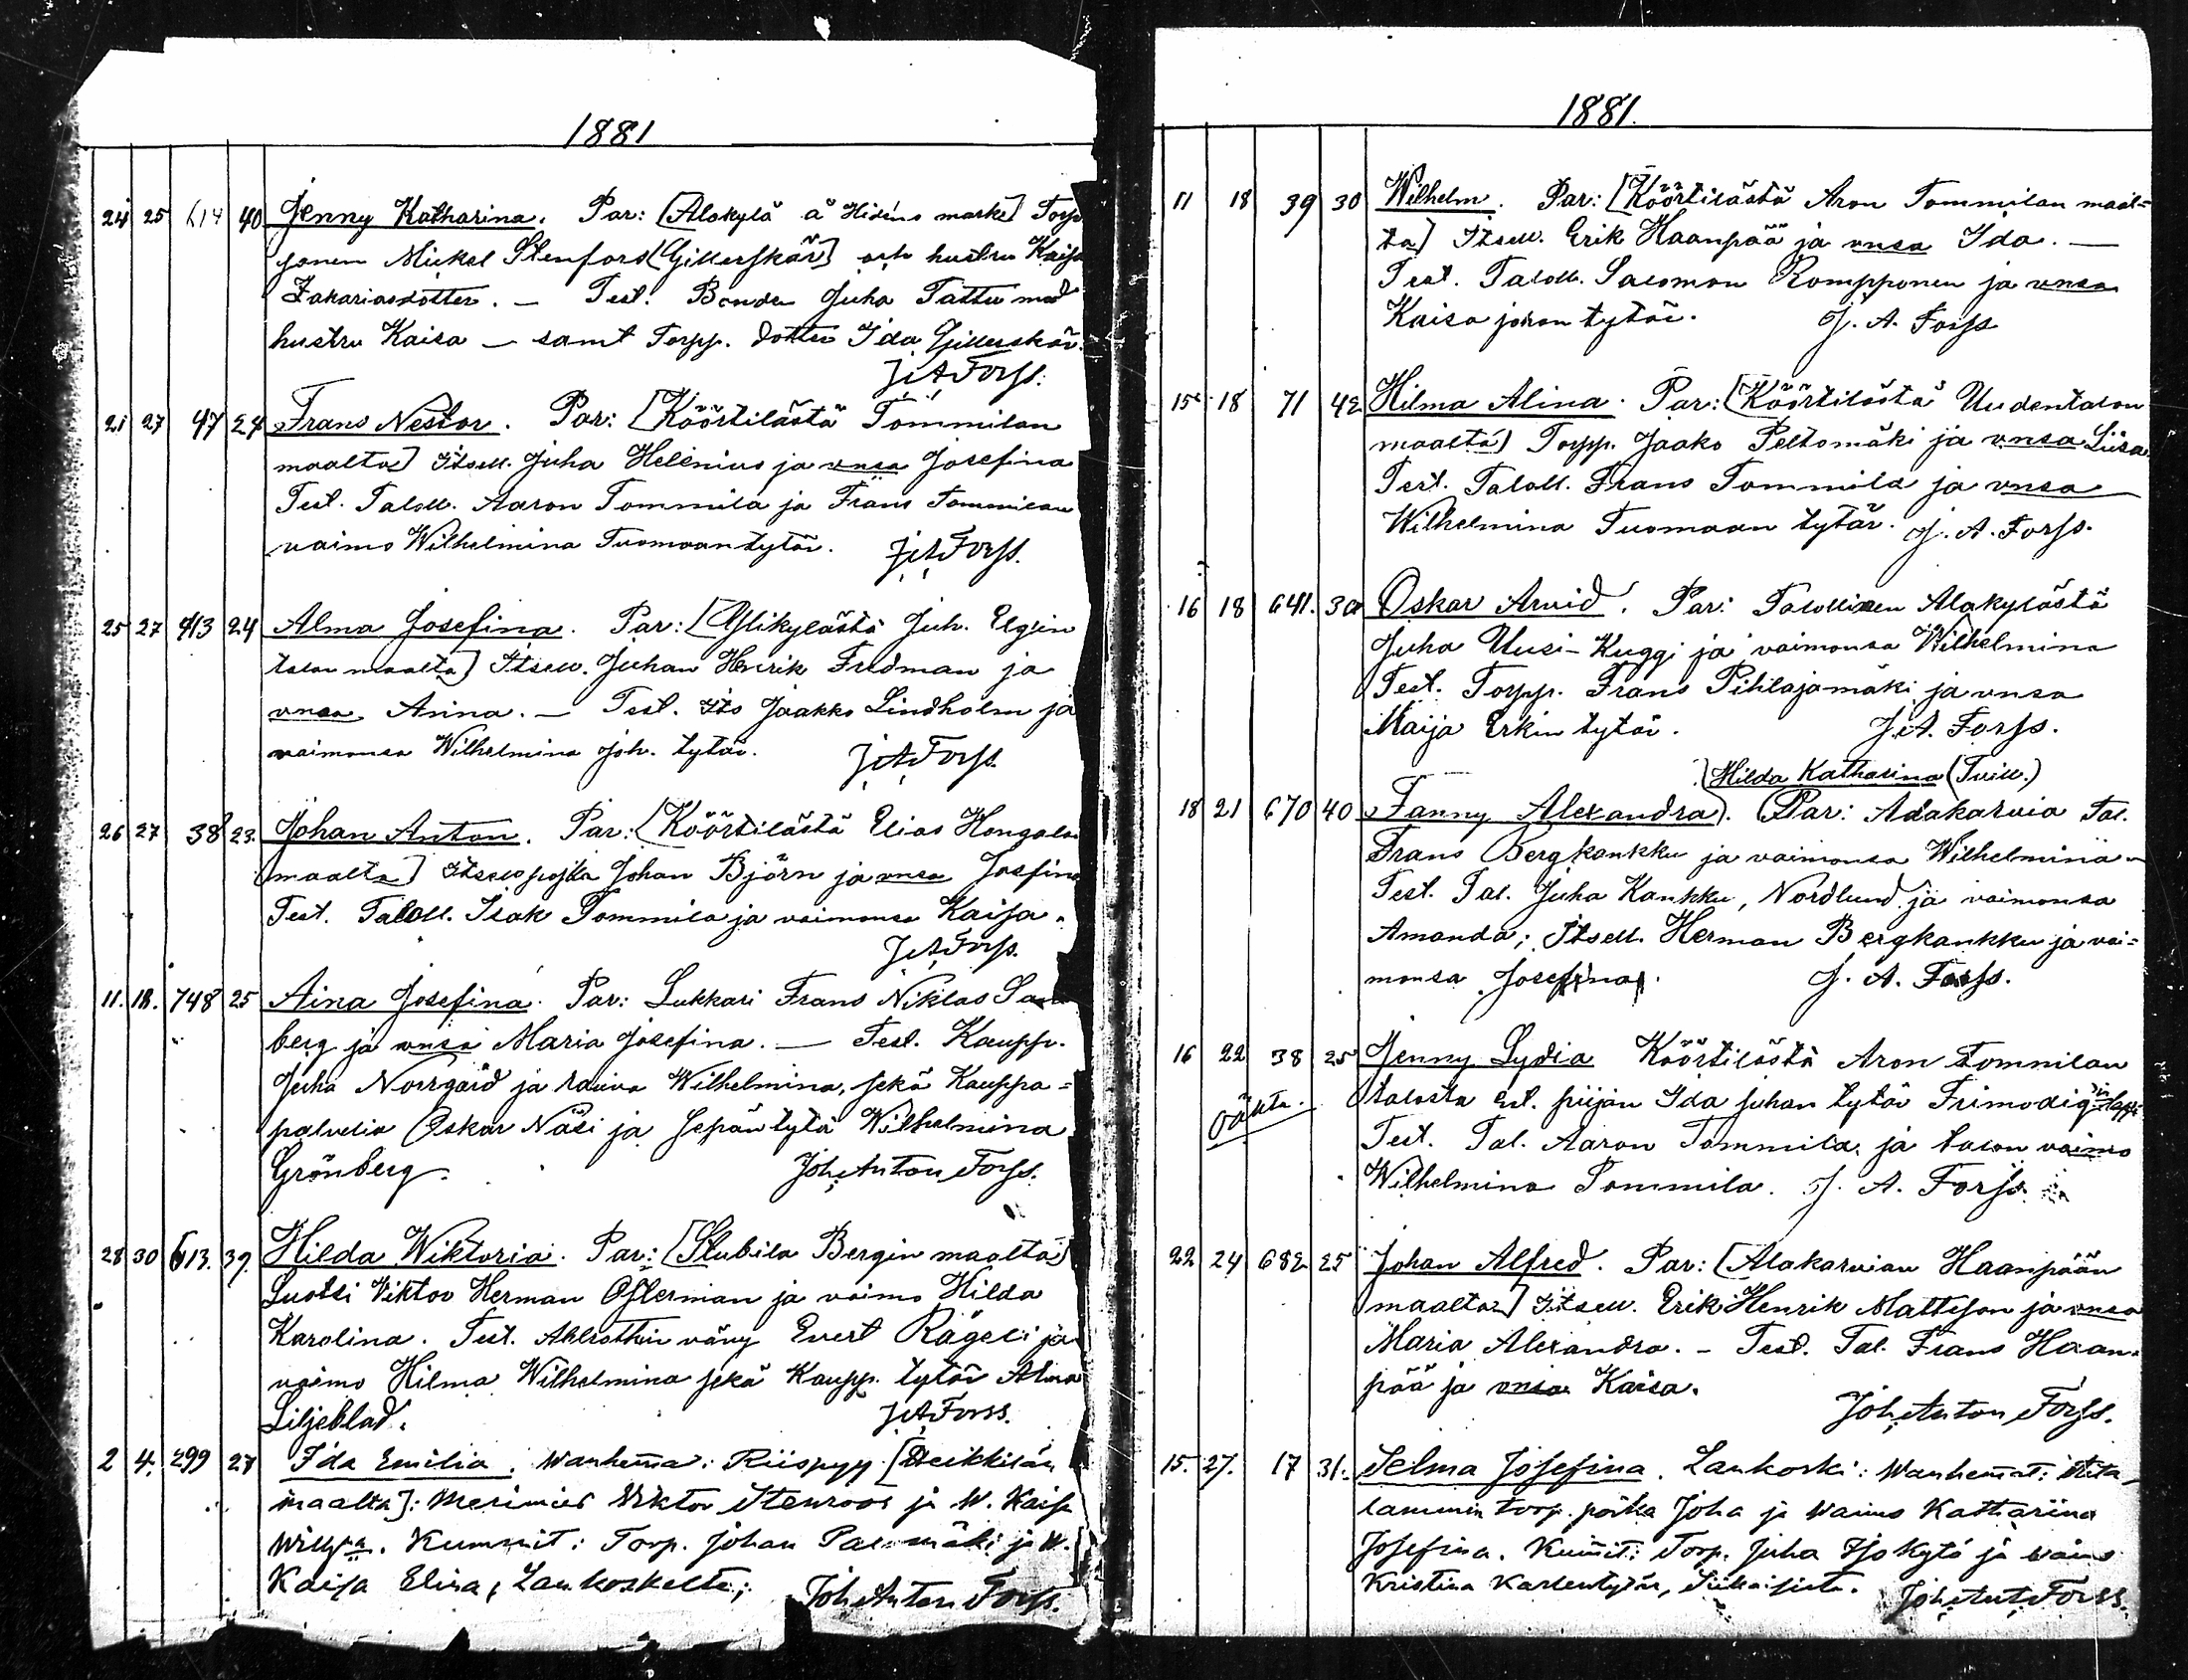 1881
24 25 614 40 Jenny Katharina. Par: [Alakylä å Hidéns marke] Torp
ponen Mickel Stenfors [Gillerskär] och hustru Kaisa
Zakariasdotter. — Test. Bonden Juha Tattu med
hustru Kaisa — samt Torpp. dotter Ida Gillerskär.
J.A. Forss.
21 27 47 24 Frans Nestor. Par: [Köörtilästä Tommilan
maalta] Itsell. Juha Helenius ja vnsa Josefina
Test. Taloll. Aaron Tommila ja Frans Tommilan
vaimo Wilhelmina Tuomaantytär. J.A. Forss.
25 27 413 24 Alma Josefina. Par: [Ylikylästä Juh. Elgin
talon maalta] Itsell. Juhan Henrik Fredman ja
vnsa Anna. — Test. Its Jaakko Lindholm ja
vaimonsa Wilhelmina Joh. tytär. J.A. Forss.
26 27 38 23. Johan Anton. Par: [Köörtilästä Elias Hongalan
maalta] Itsell poika Johan Björn ja vnsa Josfina
Test. Taloll. Isak Tommila ja vaimonsa Kaisa.
J.A. Forss.
11. 18. 748 25 Aina Josefina. Par: Lukkari Frans Niklas
berg ja vnsa Maria Josefina. — Test. Kaupp.
Juha Norrgård ja rouva Wilhelmina, sekä Kauppa=
palvelia Oskar Näsi ja Sepän tytä Wilhelmina
Grönberg. Joh. Anton Forss.
28 30 613. 39. Hilda Wiktoria. Par: [Stubila Bergin maalta]
Luotsi Viktor Herman Osterman ja vaimo Hilda
Karolina. Test. vävy Evert Rågeli ja
vaimo Hilma Wilhelmina sekä Kaupp. tytär Alma
Liljeblad. J.A. Forss.
2 4. 299 27 Ida Emilia. Wanhemma: Riispyy [Heikkilän
maalta]: Merimies Viktor Stenroos ja W. Kaisa
Kummit: Torp. Johan ja W.
Kaisa Elina, Lankoskelta; Joh. Anton Forss.
1881.
11 18 39 30 Wilhelm. Par: [Köörtilästä Aron Tommilan maal=
ta] Itsell. Erik Haanpää ja vnsa Ida. —
Test. Taloll. Salomon Rompponen ja vnsa
Kaisa Johan tytär. J. A. Forss
15 18 71 42 Hilma Alina. Par: [Köörtilästä Uudentalon
maalta] Torpp. Jaako Peltomäki ja vnsa Liisa.
Test. Taloll. Frans Tommila ja vnsa
Wilhelmina Tuomaan tytär. J. A. Forss.
16 18 641. 30 Oskar Arvid. Par: Talollinen Alakylästä
Juha Uusi-Kuggi ja vaimonsa Wilhelmina
Test. Torpp. Frans Pihlajamäki ja vnsa
Maija Erkin tytär. J.A. Forss.
Hilda Katharina (Tvill.)
18 21 670 40 Fanny Alexandra). Par: Alakarvia Tal.
Frans Bergkankku ja vaimonsa Wilhelmina
Test. Tal. Juha Kankku, Nordlund ja vaimonsa
Amanda; Itsell. Herman Bergkankku ja vai=
monsa Josefina. J. A. Forss.
16 22 38 25 Jenny Lydia Köörtilästä Aron Tommilan
talosta ent. piijan Ida Juhan tytär Frimodig
Äpärä.
Test. Tal. Aaron Tommila, ja talon vaimo
Wilhelmina Tommila. J. A. Forss
22 24 682 25 Johan Alfred. Par: [Alakarvian Haanpään
maalta] Itsell. Erik Henrik Mattsson ja vnsa
Maria Alexandra. — Test. Tal. Frans Haan=
pää ja vnsa Kaisa.
Joh. Anton Forss.
15. 27. 17 31. Selma Josefina. Lankoski: Wanhemat:
lammin torp. poika Joha ja Waimo Kathariina
Josefina. Kumit: Torp. Juha Isokytö ja waimo
Kristina Karlentytär, Siikaisista. Joh. Ant. Forss.